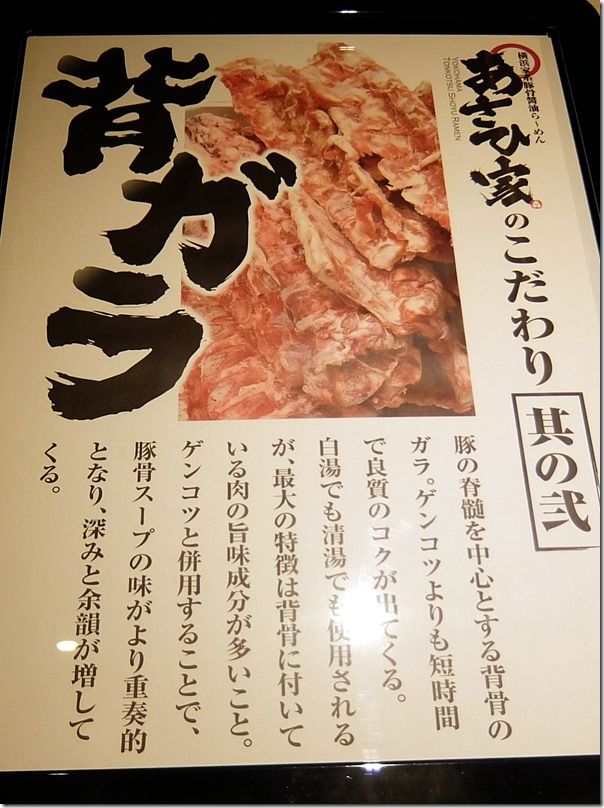 横浜家系豚骨醤油らーめん
YOKOHAMA
TONKOTSU SHOYU RAMEN
あさひ家のこだわり
其の弐
背ガラ
豚の脊髄を中心とする背骨の
ガラ。ゲンコツよりも短時間
で良質のコクが出てくる。
白湯でも清湯でも使用される
が、最大の特徴は背骨に付いて
いる肉の旨味成分が多いこと。
ゲンコツと併用することで、
豚骨スープの味がより重奏的
となり、深みと余韻が増して
くる。